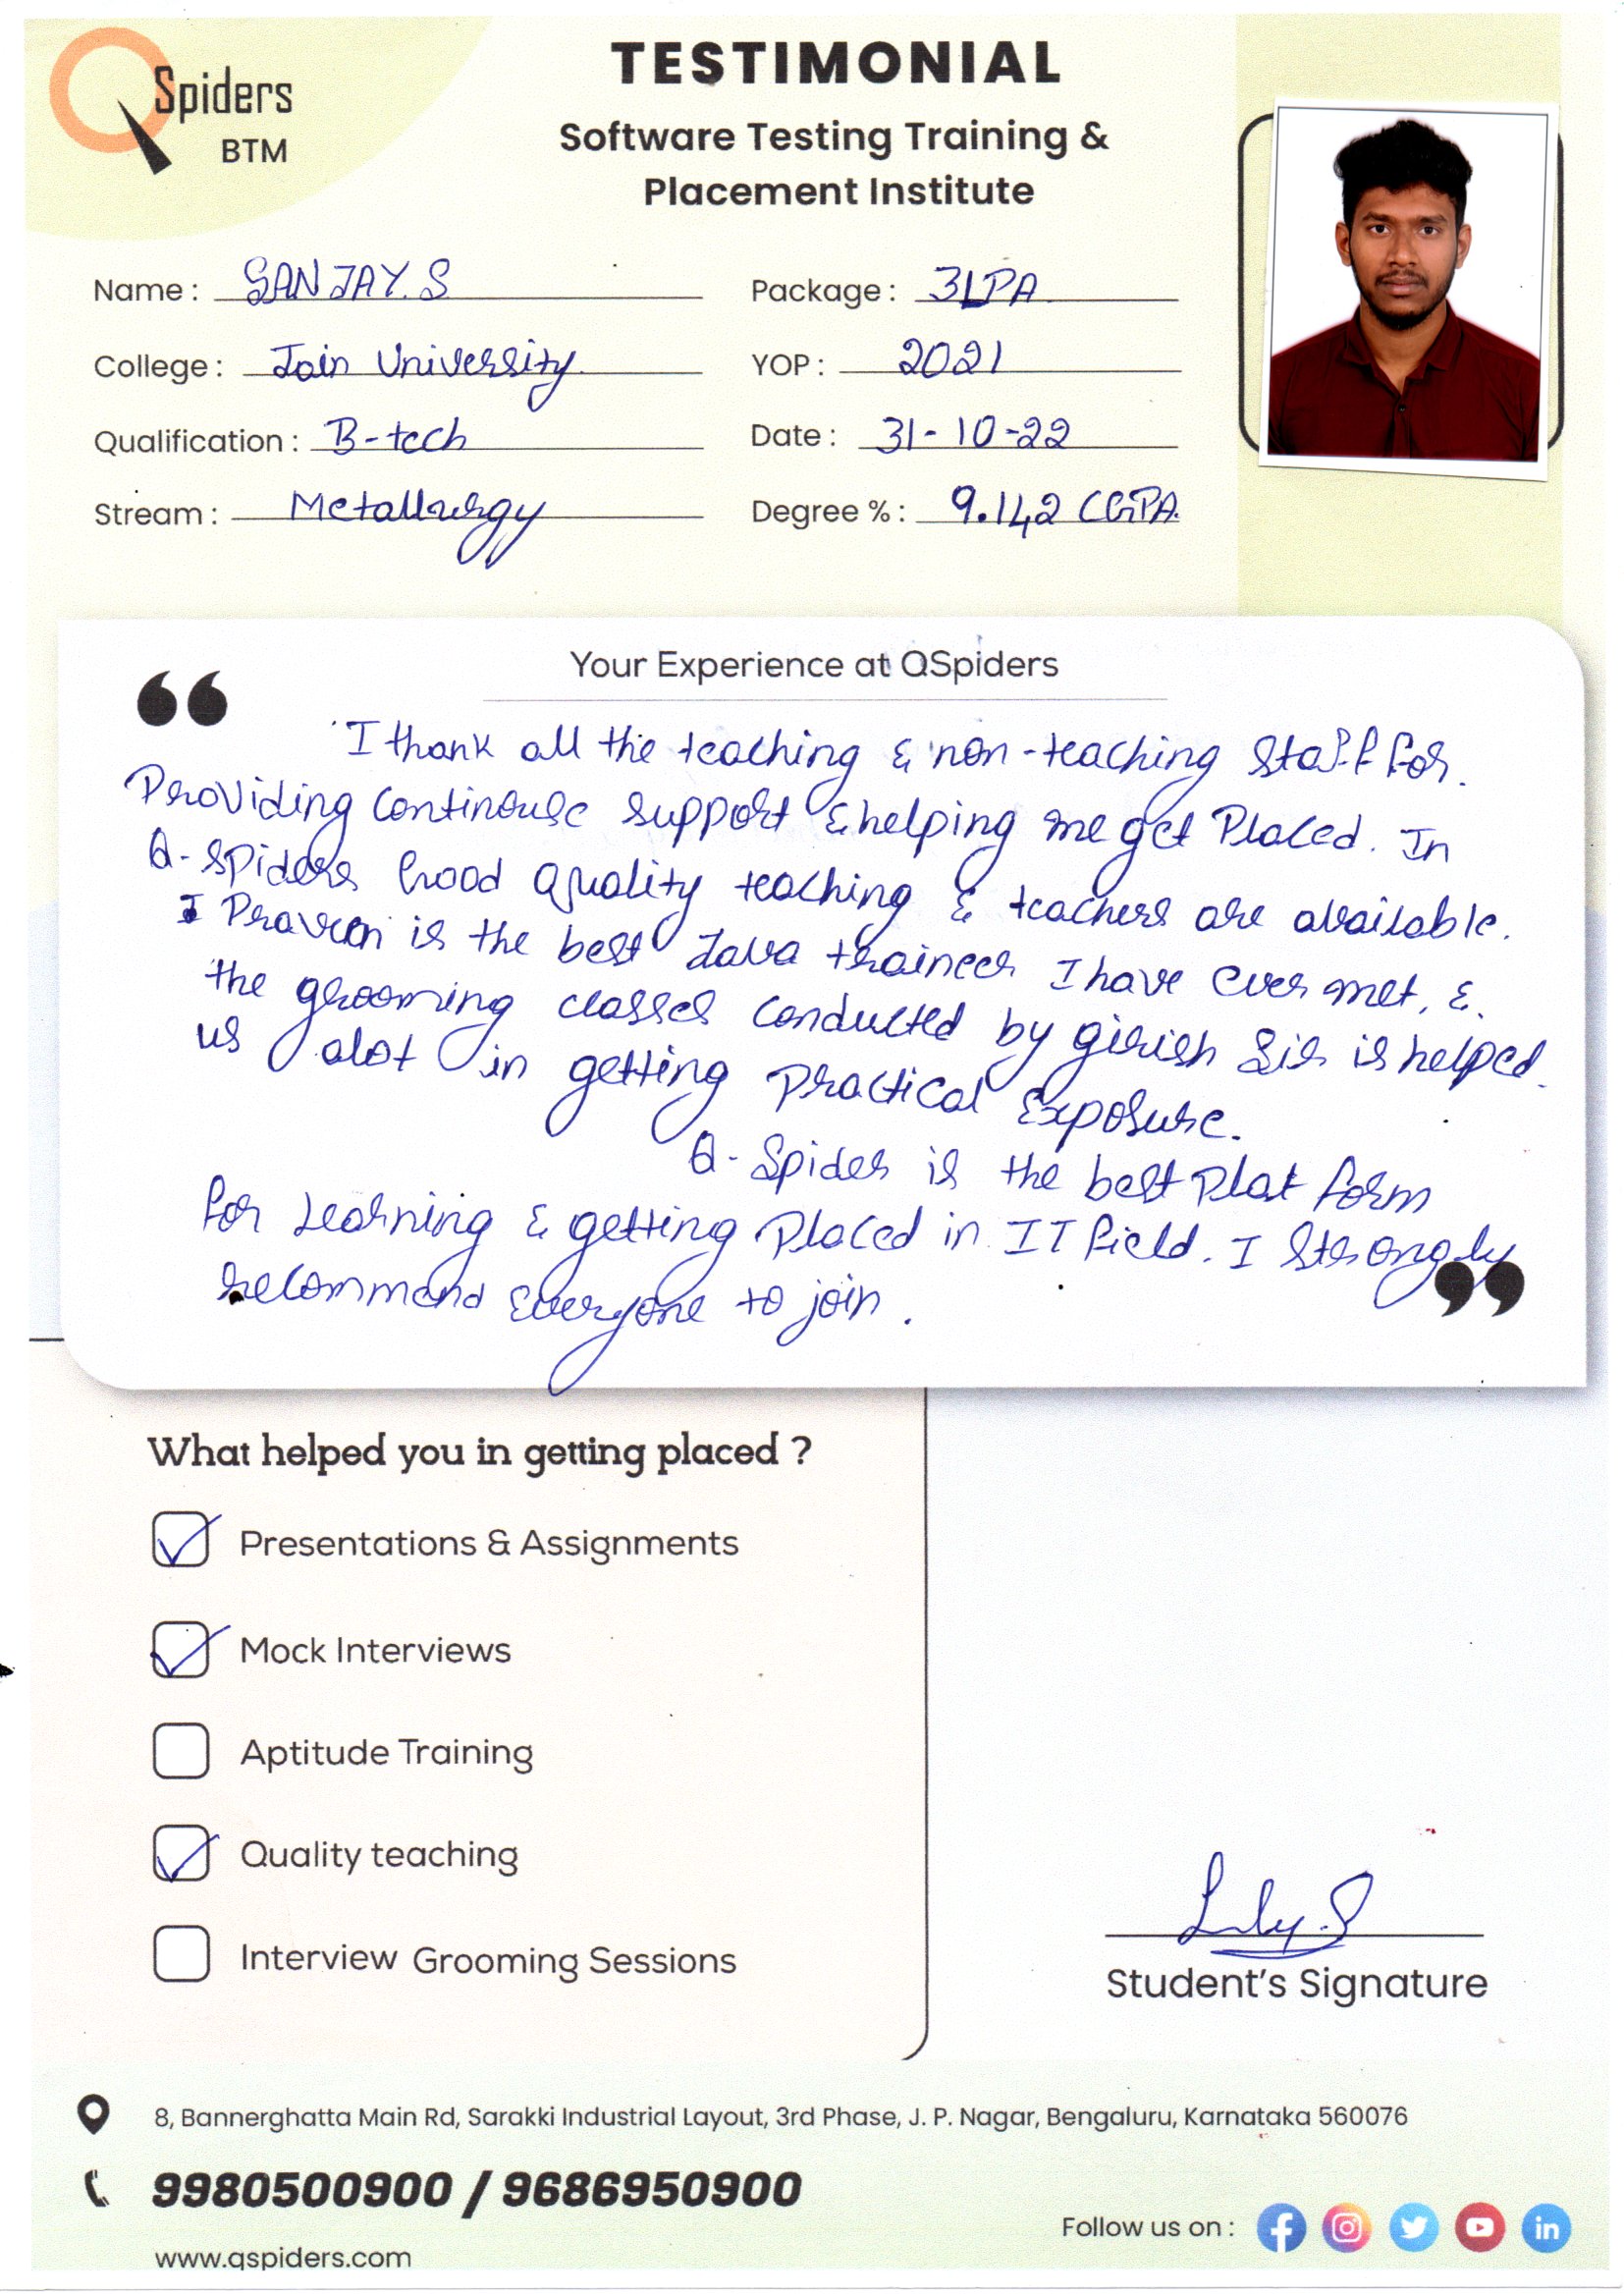 QSpiders
BTM
TESTIMONIAL
Software Testing Training &
Placement Institute
Name : SANJAY. S
Package : 3LPA
College : Jain University.
YOP : 2021
Qualification : B-tech
Date : 31-10-22
Stream : Metallurgy
Degree % : 9.142 CGPA.
Your Experience at QSpiders
I thank all the teaching & non-teaching Staff for.
Providing Continouse support & helping me get Placed. In
Q-spiders Good quality teaching & teachers are available.
Praveen is the best Java traineer I have ever met, &.
the grooming classes conducted by girish Sir is helped.
us alot in getting Practical Exposure.
Q-Spider is the best Plat form
for Learning & getting Placed in IT field. I Strongly
recommend Everyone to join.
What helped you in getting placed ?
Presentations & Assignments
Mock Interviews
Aptitude Training
Quality teaching
Interview Grooming Sessions
Student's Signature
8, Bannerghatta Main Rd, Sarakki Industrial Layout, 3rd Phase, J. P. Nagar, Bengaluru, Karnataka 560076
9980500900 / 9686950900
www.qspiders.com
Follow us on :